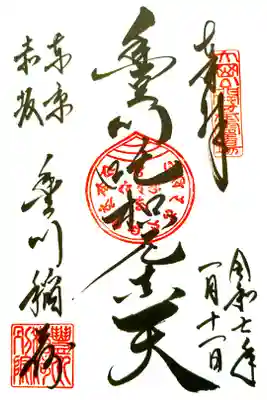 奉拝
令和七年
一月十一日
豊川吒枳尼真天
東京
赤坂
豊川稲荷